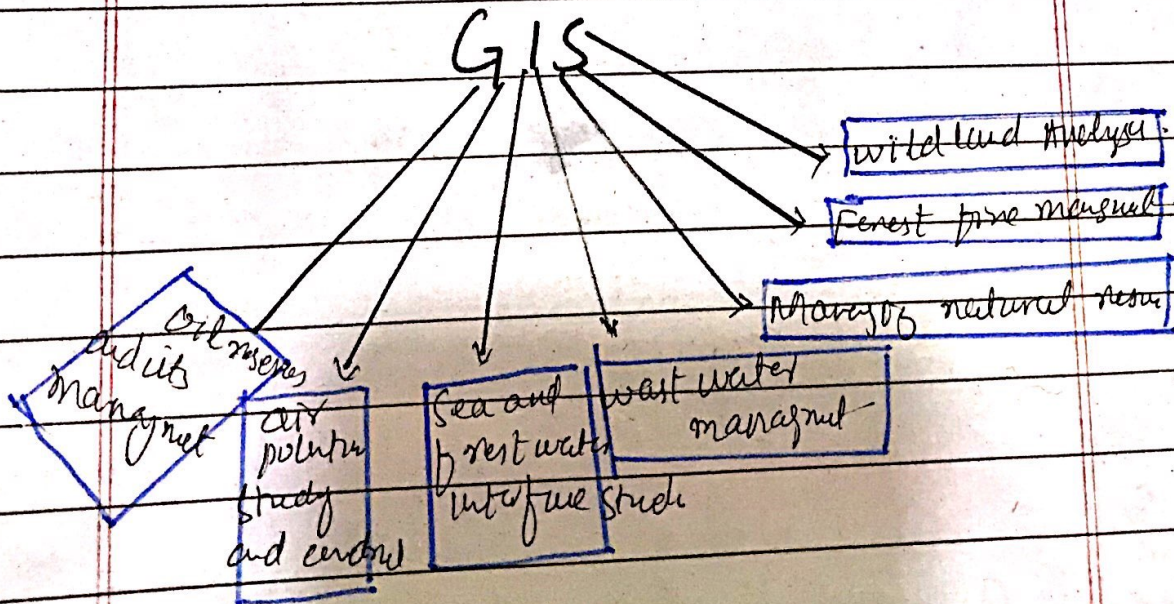 GIS
wild land Analysis
Forest fire
Managing natural
Oil reserves
and its
managmet
air
polution
study
and control
Sea and
frest water
interface Stude
wast water
managmet